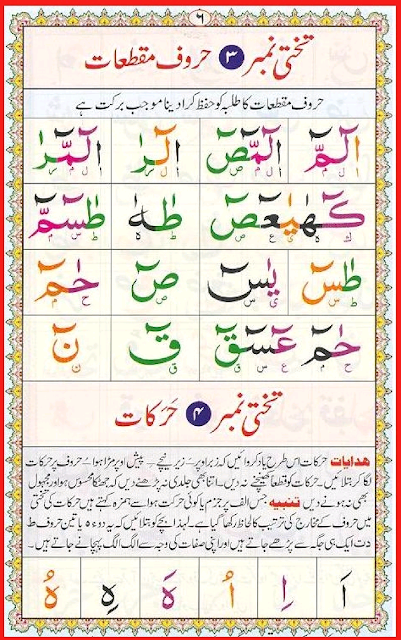 ٦
تختی نمبر ۳ حروف مقطعات
حروف مقطعات کا طلبہ کو حفظ کرا دینا موجب برکت ہے
الٓمّٓ الٓمّٓصٓ الٓرٰ الٓمّٓرٰ
ال م ال م ص ال ر ال م ر
كٓهٰيٰعٓصٓ طٰهٰ طٰسٓمّٓ
طٰسٓ يٰسٓ صٓ حٰمٓ
حٰمٓ عٓسٓقٓ قٓ نٓ
تختی نمبر ۴ حَرَکات
ھدایات حرکات اس طرح یاد کروائیں کہ زبر اوپر ـ زیر نیچے ـ پیش اوپر مڑا ہوا ـ حروف پر حرکات
لگا کر بتلائیں ـ حرکات کو قطعاً کھینچنے نہ دیں ـ اتنا بھی جلدی نہ پڑھنے دیں کہ جھٹکا محسوس ہو اور مجہول
بھی نہ ہونے دیں تنبیہ جس الف پر جزم یا کوئی حرکت ہو اسے ہمزہ کہتے ہیں حرکات کی تختی
میں حروف کے مخارج کی ترتیب کا لحاظ رکھا گیا ہے ـ لہذا بچے کو بتلائیں کہ یہ دو ء ہ یا تین حروف ط
دت ایک ہی جگہ سے پڑھے جاتے ہیں اور اپنی صفات کی وجہ سے الگ الگ پہچانے جاتے ہیں ـ
اَ اِ اُ هَ هِ هُ